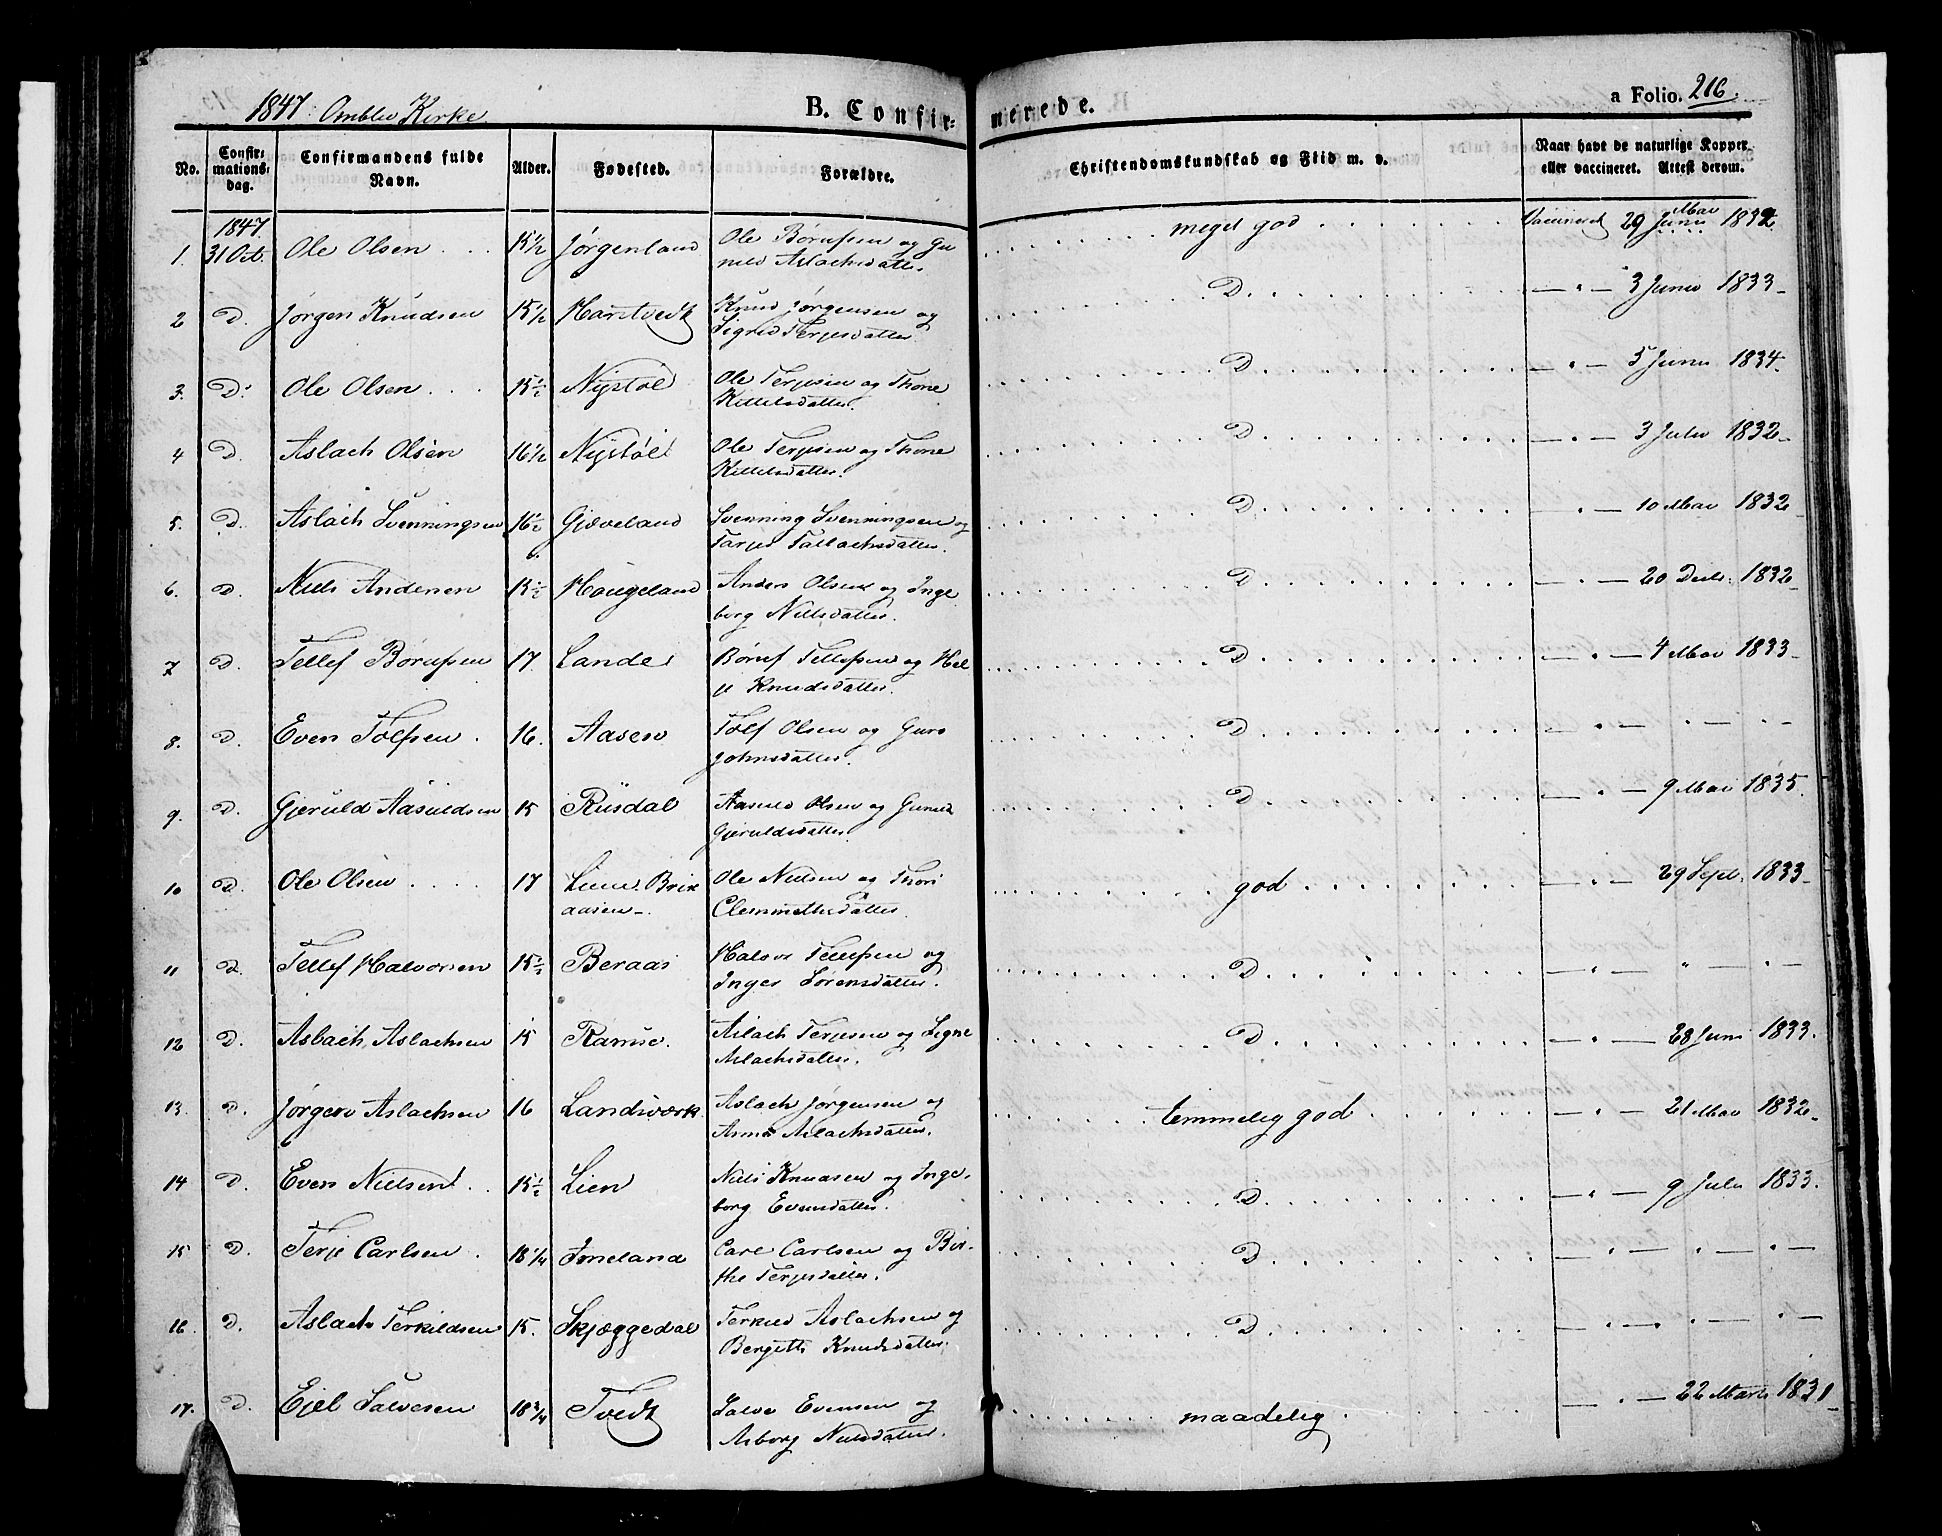 1847. Omblie Kirke
B. Confirmerede.
a Folio. 216.
No. Confirmations-dag. Confirmandens fulde Navn. Alder. Fødested. Forældre. Christendomskundskab og Flid m. v. Naar havt de naturlige Kopper eller vaccineret. Attest derom.
1847
1. 31 Oct. Ole Olsen 15 1/2 Jørgenland Ole Børufsen og Gunild Aslachsdatter. meget god Vaccineret 29 Mai 1832
2 D. Jørgen Knudsen 15 1/2 Harstvedt Knud Jørgensen og
Sigrid Terjesdatter D. — " — 3 Juni 1833
3. D. Ole Olsen 15 1/2 Nystøl Ole Terjesen og Thone
Kittelsdatter. D. — " — 5 Juni 1834.
4 D. Aslach Olsen 16 1/2 Nystøl Ole Terjesen og Thone
Kittelsdatter. D. — " — 3 Juli 1832
5. D. Aslach Svenningsen 16 1/2 Gjæveland Svenning Svenningsen og
Tarjer Tallachsdatter. D. — " — 10 Mai 1832
6. D. Niels Andersen 15 1/2 Haugeland Anders Olsen og Inge
borg Nielsdatter. D. — " — 20 Decbr. 1832
7 D. Tellef Børufsen 17. Lande Børuf Tellefsen og Hel
je Knudsdatter. D. — " — 4 Mai 1833
8. D. Even Tolfsen 16. Aasen Tolf Olsen og Guro
Johnsdatter. D. — " — " — " —
9. D. Gjeruld Aasuldsen 15 Risdal Aasuld Olsen og Gunild
Gjeruldsdatter. D. — " — 9 Mai 1835.
10 D. Ole Olsen 17 Liene
aasen Ole Nielsen og Thori
Clemmetsdatter. god — " — 29 Sept. 1833
11 D. Tellef Halvorsen 15 1/2 Beraas Halvor Tellefsen og
Inger Sørensdatter. D. — " — " — " —
12 D. Aslach Aslachsen 15 Ramse. Aslach Terjesen og Signe
Aslachsdatter. D. — " — 28 Juni 1833.
13. D. Jørgen Aslachsen 16 Landsværk. Aslach Jørgensen og
Anne Aslachsdatter. temmelig god — " — 21 Mai 1832
14 D. Even Nielsen 15 1/2 Lien Niels Knudsen og Inge-
borg Evensdatter. D. — " — 9 Juli 1833.
15 D. Terje Carlsen 18 1/4 Imeland Carl Carlsen og Bir-
the Terjesdatter. D — " — " — " —
16 D. Aslach Terkildsen 15. Skjæggedal Terkild Aslachsen og
Bergitte Knudsdatter. D — " — " — " —
17. D. Ejel Salvesen 18 3/4 Tvedt Salve Evensen og
Asborg Nielsdatter. maadelig — " — 22 Marts 1831